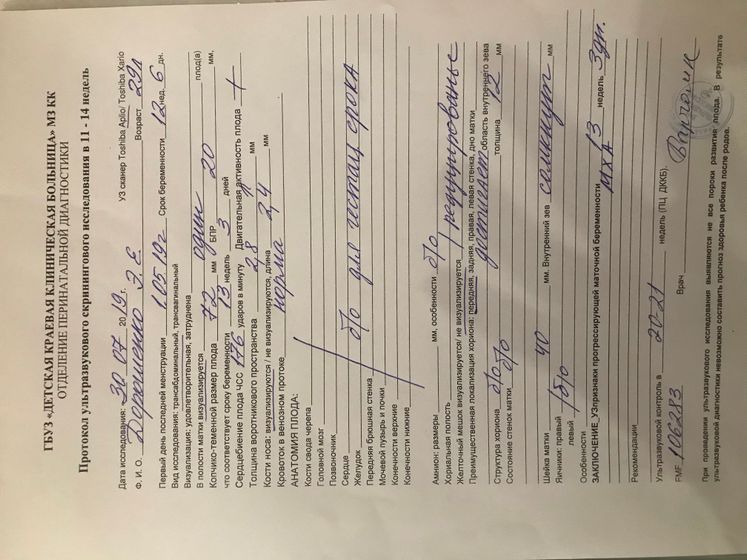 ГБУЗ «ДЕТСКАЯ КРАЕВАЯ КЛИНИЧЕСКАЯ БОЛЬНИЦА» МЗ КК
ОТДЕЛЕНИЕ ПЕРИНАТАЛЬНОЙ ДИАГНОСТИКИ
Протокол ультразвукового скринингового исследования в 11 - 14 недель
Дата исследования: 30 07 2019 г. УЗ сканер Toshiba Aplio/ Toshiba Xario
Ф. И. О. Э. Е. Возраст 29л
Первый день последней менструации 1.05.19г Срок беременности 12 нед. 6 дн.
Вид исследования: трансабдоминальный, трансвагинальный
Визуализация: удовлетворительная, затруднена
В полости матки визуализируется один плод(а)
Копчико-теменной размер плода 72 мм БПР 20 мм.
что соответствует сроку беременности 13 недель 3 дней
Сердцебиение плода ЧСС 176 ударов в минуту Двигательная активность плода +
Толщина воротникового пространства 2,8 мм
Кости носа: визуализируются / не визуализируются, длина 2,4 мм
Кровоток в венозном протоке норма
АНАТОМИЯ ПЛОДА:
Кости свода черепа
Головной мозг
Позвоночник
Сердце
Желудок б/о для гестац срока
Передняя брюшная стенка
Мочевой пузырь и почки
Конечности верхние
Конечности нижние
Амнион: размеры мм, особенности б/о
Хориальная полость
Желточный мешок визуализируется/ не визуализируется /
Преимущественная локализация хориона: передняя, задняя, правая, левая стенка, дно матки
достигает область внутреннего зева
Структура хориона б/о толщина 12 мм
Состояние стенок матки б/о
Шейка матки 40 мм. Внутренний зев сомкнут мм
Яичники: правый б/о
левый
Особенности
ЗАКЛЮЧЕНИЕ УЗ признаки прогрессирующей маточной беременности 13 недель 3 дн.
МХА
Рекомендации
Ультразвуковой контроль в 20-21 недель (ПЦ ДККБ).
FMF Врач
При проведении ультразвукового исследования выявляются не все пороки развития плода. В результате
ультразвуковой диагностики невозможно составить прогноз здоровья ребенка после родов.